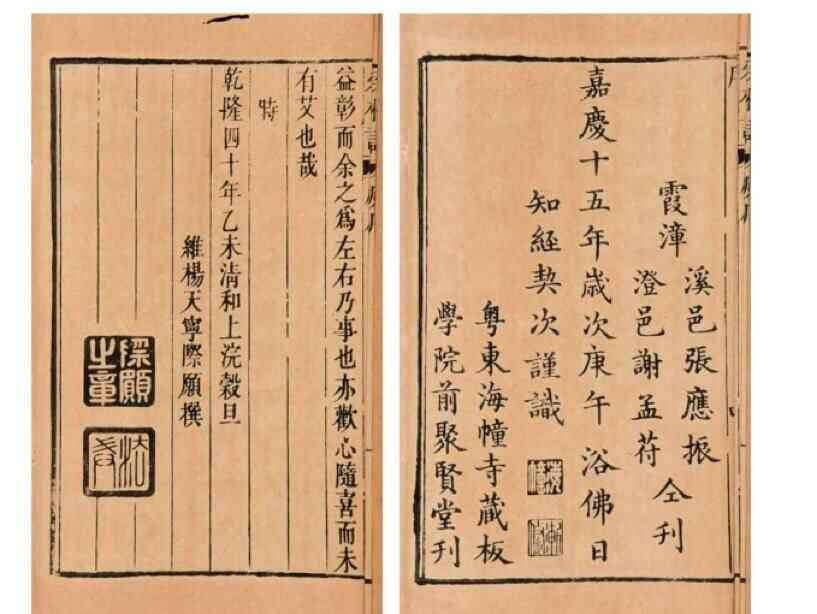 益彰而余之爲左右乃事也亦歡心隨喜而未
有艾也哉
時
乾隆四十年乙未清和上浣穀旦
維楊天寧際願撰
際願之章
溪邑張應振
霞漳
澄邑謝孟苻
仝刊
嘉慶十五年歲次庚午浴佛日
知經契次謹識
粵東海幢寺藏板
學院前聚賢堂刊